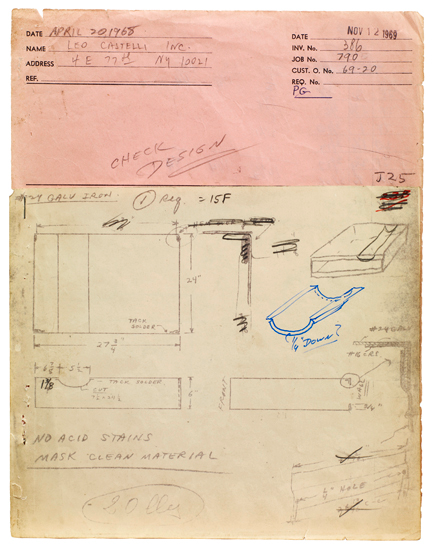 DATE APRIL 20 1968
NAME LEO CASTELLI INC.
ADDRESS 4 E 77th NY 10021
REF.
DATE NOV 12 1969
INV. No. 386
JOB No. 790
CUST. O. No. 69-20
REQ. No.
PG
CHECK DESIGN
J25
GALV IRON
① Req. = 15F
24"
TACK SOLDER
27 3/4"
1/4" DOWN?
TACK SOLDER
CUT
FRONT
NO ACID STAINS
MASK CLEAN MATERIAL
HOLE